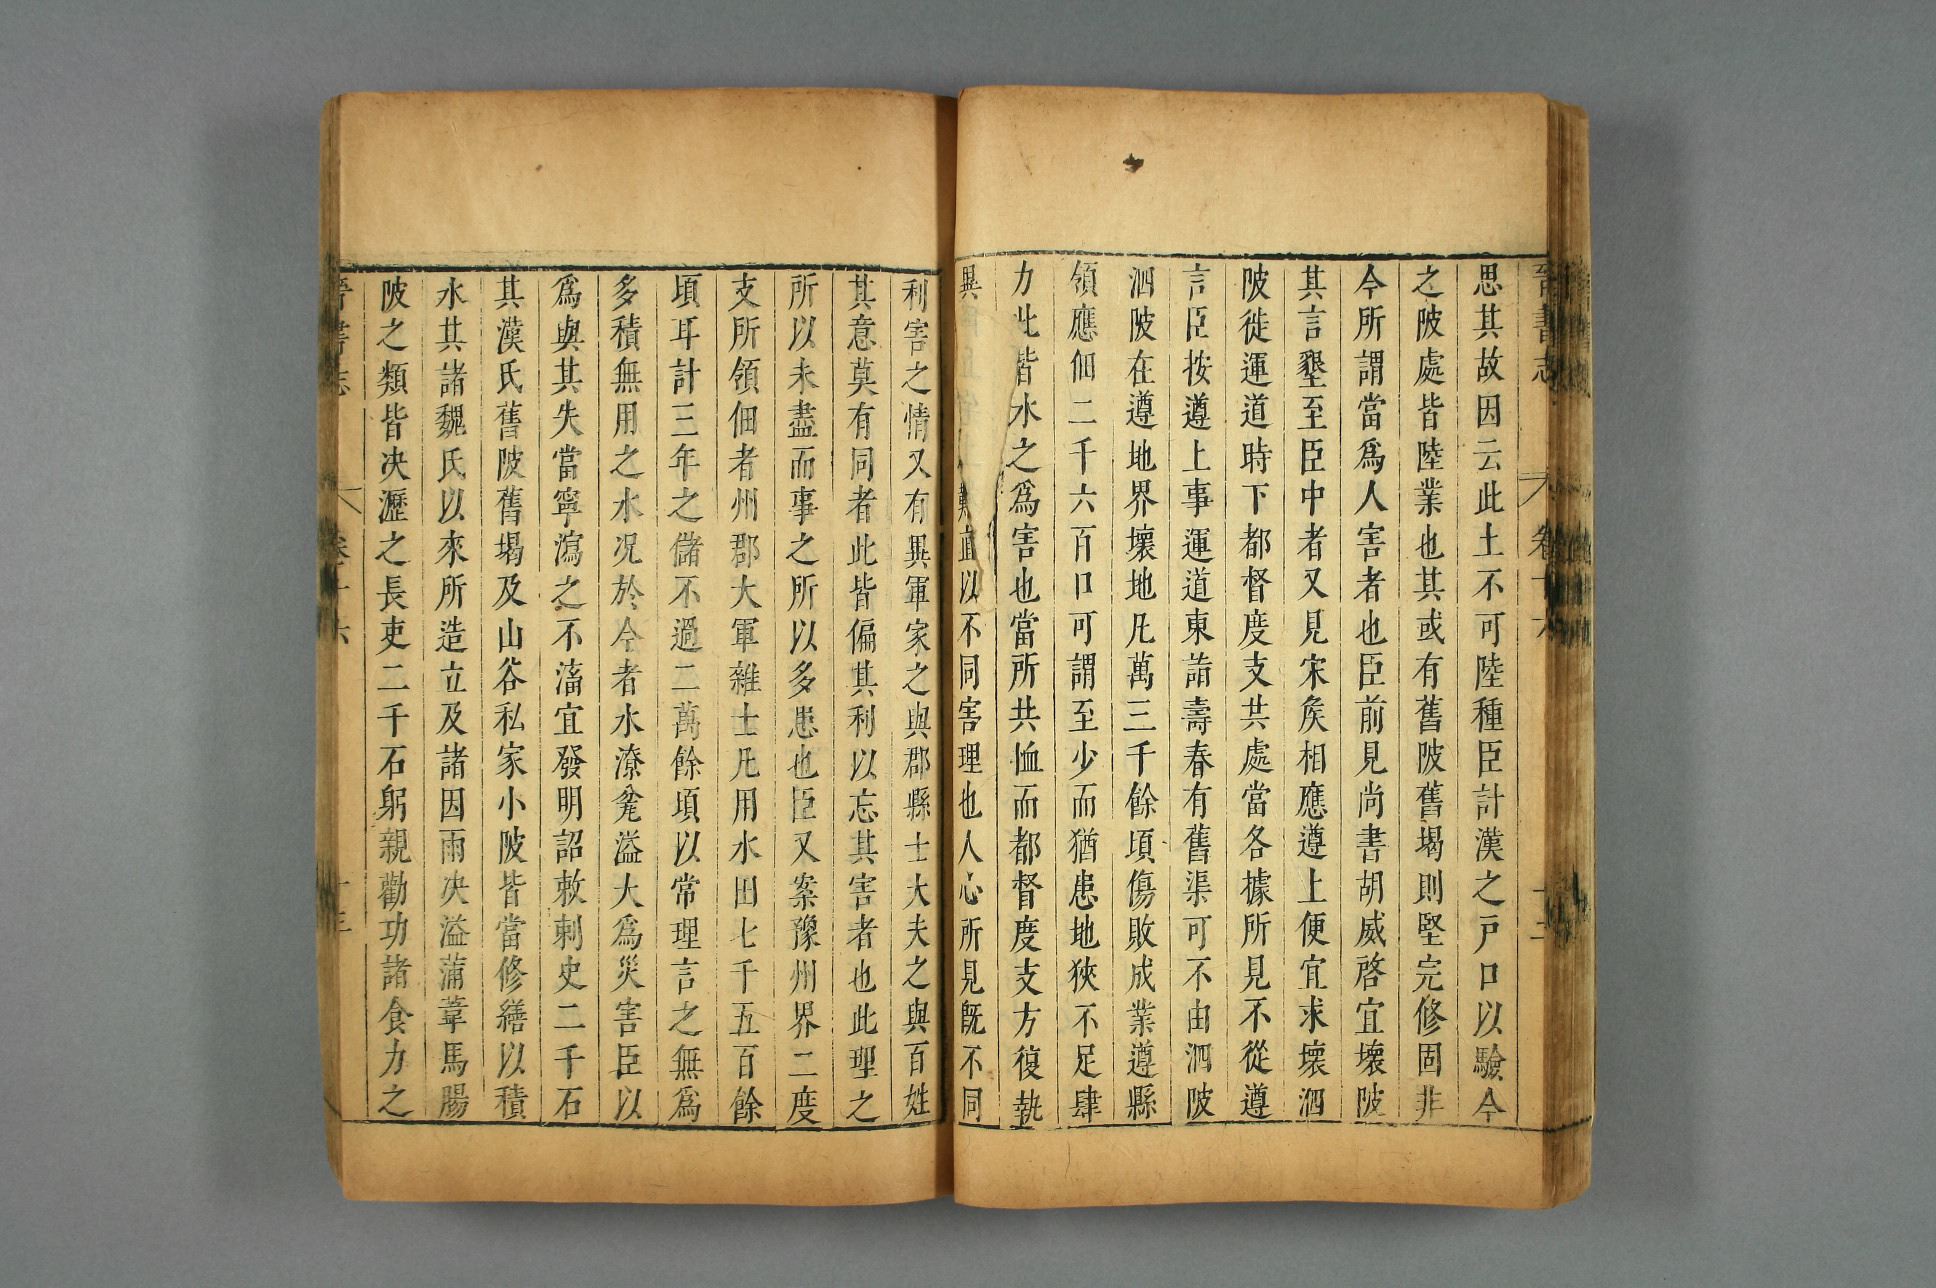 晉書志 卷十六 十二
思其故因云此土不可陸種臣計漢之戸口以驗今
之陂處皆陸業也其或有舊陂舊堨則堅完修固非
今所謂當爲人害者也臣前見尚書胡威啓宜壞陂
其言墾至臣中者又見宋矦相應遵上便宜求壞泗
陂徙運道時下都督度支共處當各據所見不從遵
言臣按遵上事運道東詣壽春有舊渠可不由泗陂
泗陂在遵地界壞地凡萬三千餘頃傷敗成業遵縣
領應佃二千六百口可謂至少而猶患地狹不足肆
力此皆水之爲害也當所共恤而都督度支方復執
異 難直以不同害理也人心所見旣不同
利害之情又有異軍家之與郡縣士大夫之與百姓
其意莫有同者此皆偏其利以忘其害者也此理之
所以未盡而事之所以多患也臣又案豫州界二度
支所領佃者州郡大軍雜士凡用水田七千五百餘
頃耳計三年之儲不過二萬餘頃以常理言之無爲
多積無用之水况於今者水潦瓫溢大爲災害臣以
爲與其失當寧瀉之不滀宜發明詔敕刺史二千石
其漢氏舊陂舊堨及山谷私家小陂皆當修繕以積
水其諸魏氏以來所造立及諸因雨决溢蒲葦馬腸
陂之類皆决瀝之長吏二千石躬親勸功諸食力之
晉書志 卷十六 十三